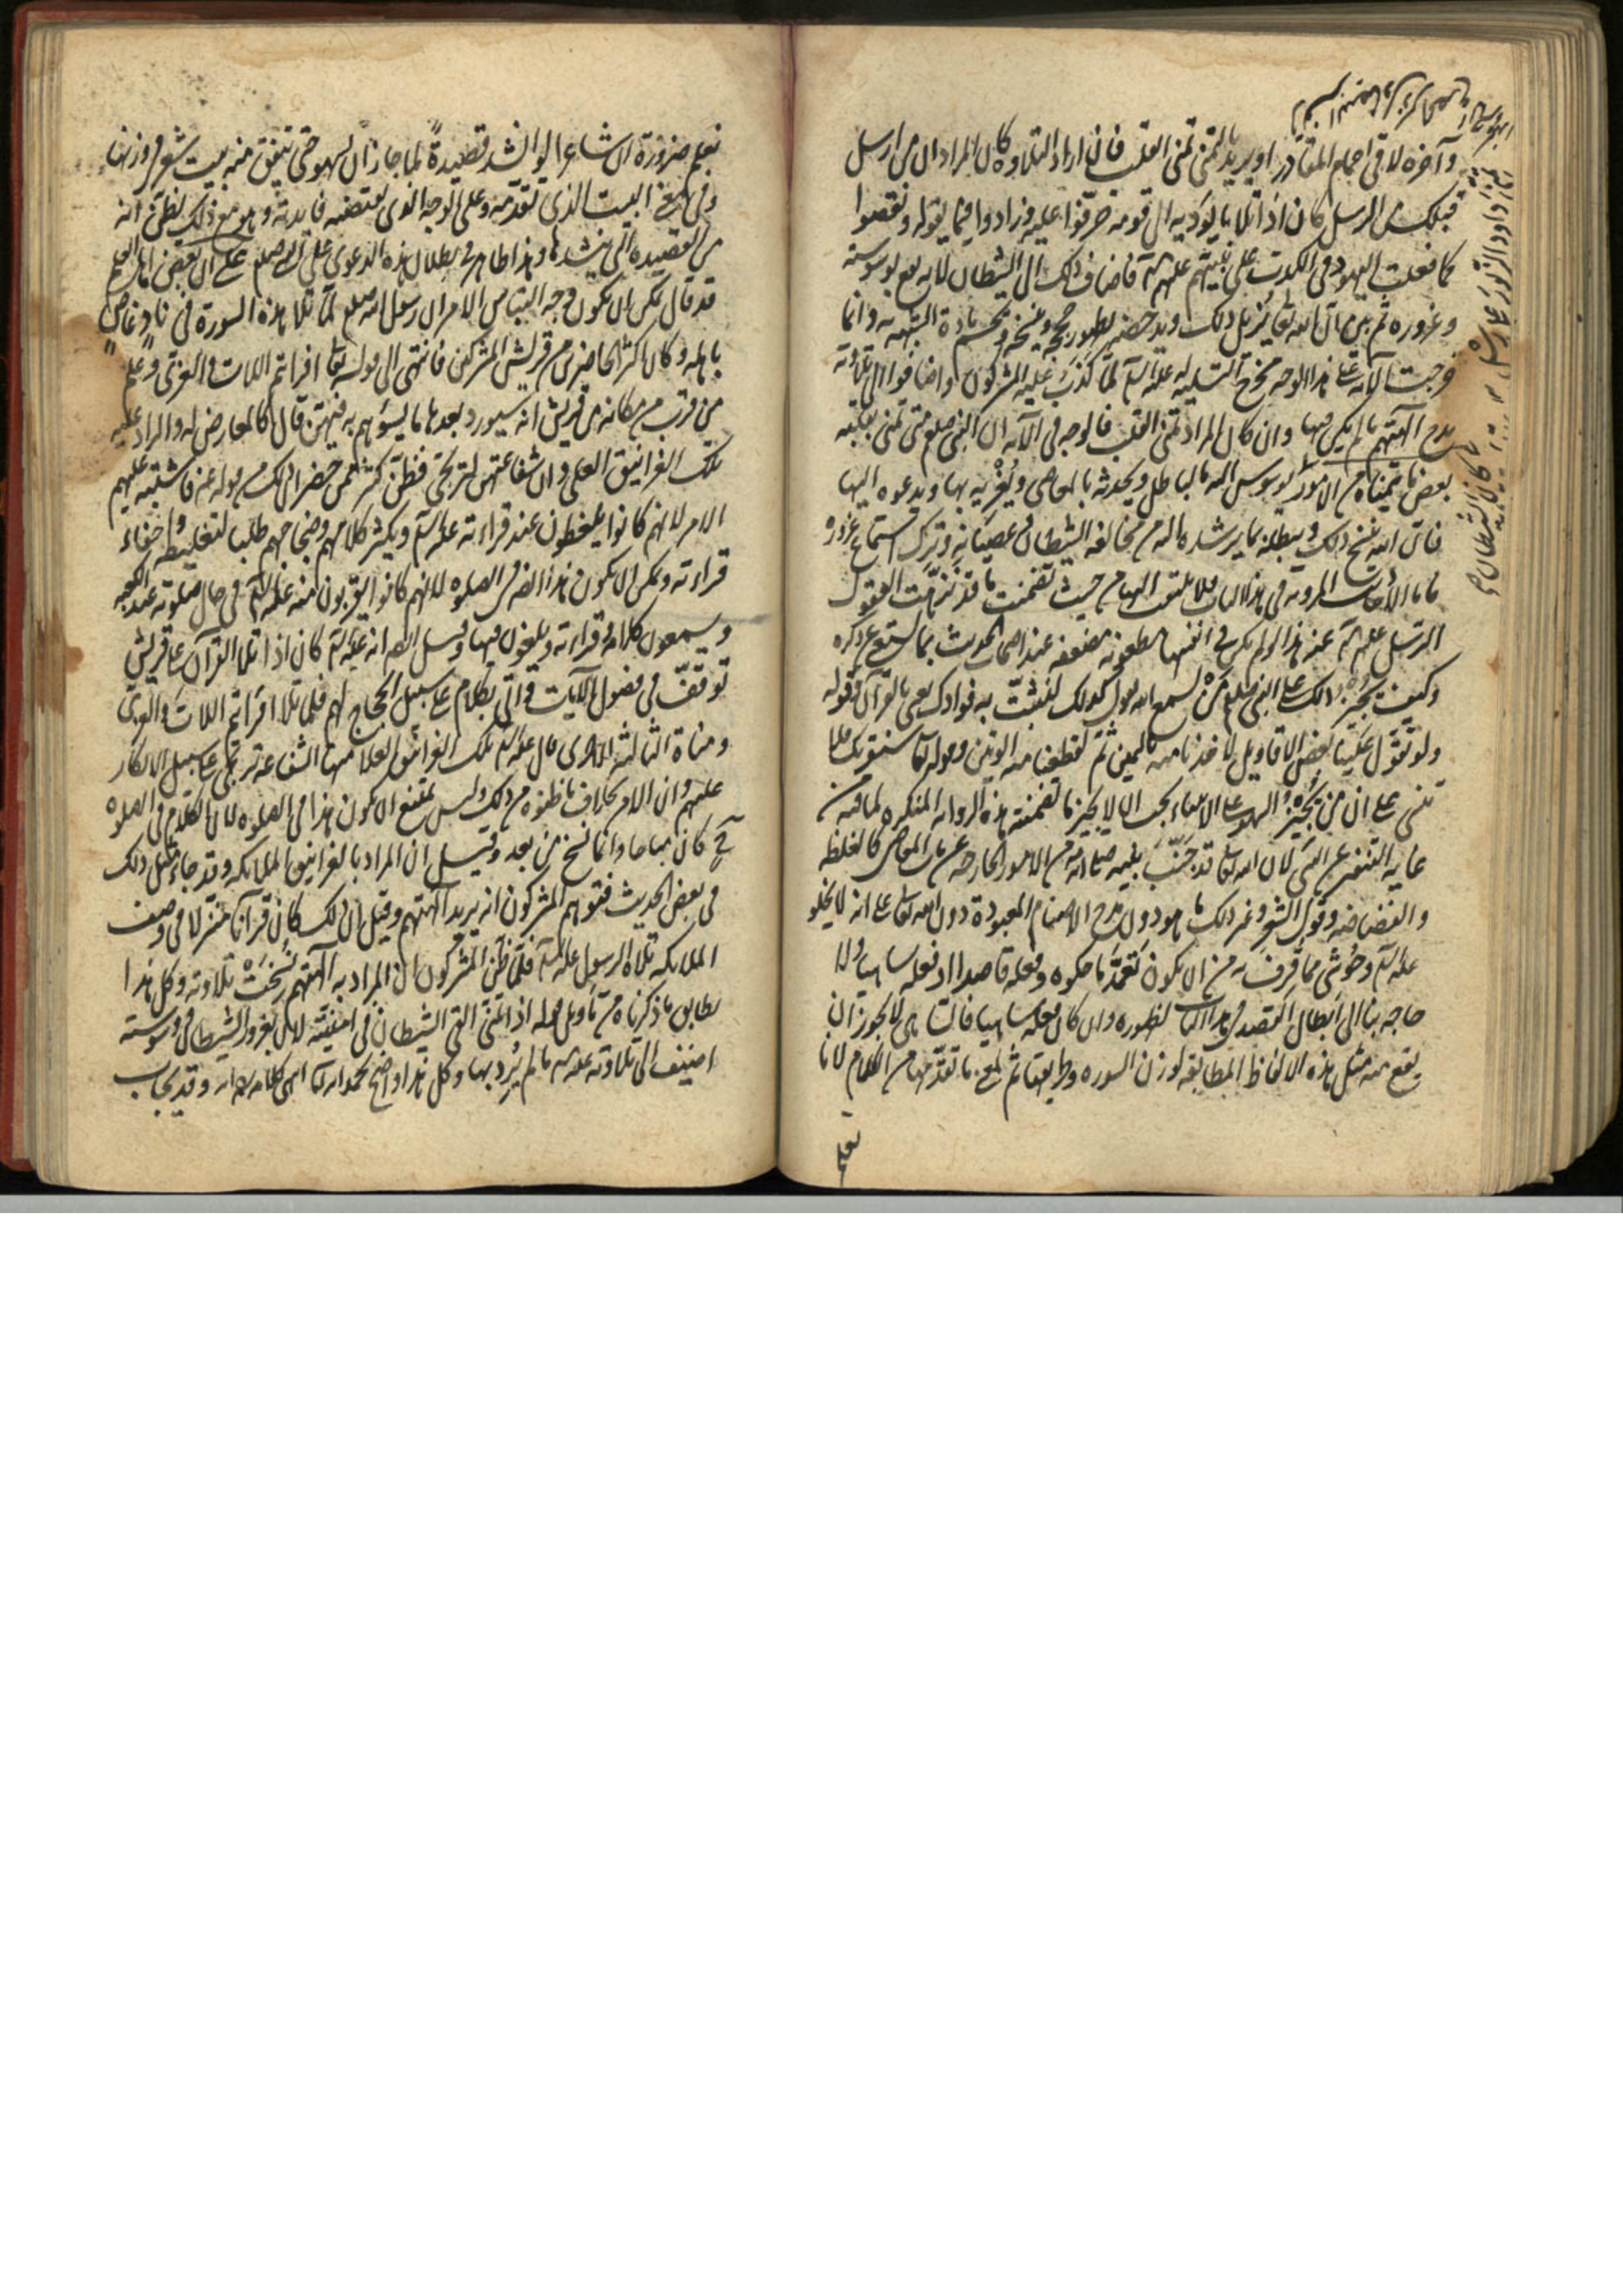 وآخره لاقى احمام المقادر او يريد بالتمنى تمنى القلب فان اراد التلاوة كان المراد ان من ارسل
قبلك من الرسل كان اذا تلا ما يؤديه الى قومه حرفوا عليه وزادوا فيما يقوله ونقصوا
كما فعلت اليهود فى الكذب على نبيهم عليه السلم فاضاف ذلك الى الشيطان لانه يقع بوسوسته
وغروره ثم بين ان الله تعالى يزيل ذلك ويدحضه بظهور حججه وينسخه ويحسم مادة الشبهة به وانما
خرجت الآية على هذا الوجه مخرج التسلية له عليه السلم لما كذب عليه المشركون واضافوا الى تلاوته
مدح آلهتهم ما لم يكن فيها وان كان المراد تمنى القلب فالوجه فى الآية ان النبى صلعم متى تمنى بقلبه
بعض ما يتمناه من الامور يوسوس اليه بالباطل ويحدثه بالمعاصى ويغريه بها ويدعوه اليها
فان الله ينسخ ذلك ويبطله بما يرشده اليه من مخالفة الشيطان وعصيانه وترك استماع غروره
فاما الأحاديث المروية فى هذا الباب فلا يلتفت اليها من حيث تضمنت ما قد نزهت العقول
الرسل عليهم السلم عنه هذا لو لم يكن فى انفسها مطعونة مضعفة عند اصحاب الحديث بما يستغنى عن ذكره
وكيف يجيز ذلك على النبى صلعم من يسمع الله يقول كذلك لنثبت به فؤادك يعنى بالقرآن وقوله
ولو تقول علينا بعض الاقاويل لاخذنا منه باليمين ثم لقطعنا منه الوتين وقوله تعالى سنقرئك فلا
تنسى على ان من يجيز السهو على الانبياء يجب ان لا يجيز ما تضمنته هذه الرواية المنكرة لما فيه من
غاية التنفير عن النبى لان الله تعالى قد جنب نبيه صلى الله من الامور الخارجة عن باب المعاصى كالغلظة
والفضاضة وقول الشعر وغير ذلك ما هو دون مدح الاصنام المعبودة دون الله تعالى على انه لا يخلو
عليه السلم وحوشى مما قرف به من ان يكون تعمد ما حكوه وفعله قاصدا او فعله ساهيا ولا
حاجة بنا الى ابطال القصد فى هذا الباب لظهوره وان كان فعله ساهيا فالساهى لا يجوز ان
يقع منه مثل هذه الالفاظ المطابقة لوزن السورة وطريقتها ثم لمعنى ما تقدمها من الكلام لانا
نعلم
نعلم ضرورة ان شاعرا لو انشد قصيدة لما جاز ان يسهو حتى يتفق منه بيت شعر فى وزنها
وفى معنى البيت الذى تقدمه وعلى الوجه الذى يقتضيه فايدته وهو مع ذلك يظن انه
من القصيدة التى ينشدها وهذا ظاهر فى بطلان هذه الدعوى على النبى صلعم على ان بعض اهل العلم
قد قال يمكن ان يكون وجه التباس الامر ان رسول الله صلعم لما تلا هذه السورة فى ناد غاص
باهله وكان اكثر الحاضرين من قريش المشركين فانتهى الى قوله تعالى افرايتم اللات والعزى وعلم
من قرب من مكانه من قريش انه سيورد بعدها ما يسؤهم به فيهن قال كالمعارض له والراد عليه
تلك الغرانيق العلى وان شفاعتهن لترتجى فظن كثير ممن حضر ان ذلك من قوله عنه فاشتبه عليهم
الامر لانهم كانوا يلغطون عند قراءته عليه السلم ويكثر كلامهم وضجاجهم طلبا لتغليطه واخفاء
قراءته ويمكن ان يكون هذا ايضا فى الصلوة لانهم كانوا يقربون منه عليه السلم فى حال صلوته عند الكعبة
ويسمعون كلامه وقراءته ويلغون فيها وقيل ايضا انه عليه السلم كان اذا تلا القرآن على قريش
توقف فى فصول الآيات واتى بكلام على سبيل الحجاج لهم فلما تلا افرايتم اللات والعزى
ومناة الثالثة الاخرى قال عليه السلم تلك الغرانيق العلا منها الشفاعة ترتجى على سبيل الانكار
عليهم وان الامر بخلاف ما ظنوه من ذلك وليس يمتنع ان يكون هذا فى الصلوة لان الكلام فى الصلوة
ح كان مباحا وانما نسخ من بعد وقيل ان المراد بالغرانيق الملائكة وقد جاء مثل ذلك
فى بعض الحديث فتوهم المشركون انه يريد آلهتهم وقيل ان ذلك كان قرآنا منزلا فى وصف
الملائكة تلاه الرسول عليه السلم فلما ظن المشركون ان المراد به آلهتهم نسخت تلاوته وكل هذا
يطابق ما ذكرناه من تأويل قوله اذا تمنى القى الشيطان فى امنيته لان بغرور الشيطان ووسوسته
اضيف الى تلاوته عليه السلم ما لم يرد بها وكل هذا واضح بحمد الله تعالى انتهى كلامه رحمه الله وقد يجاب